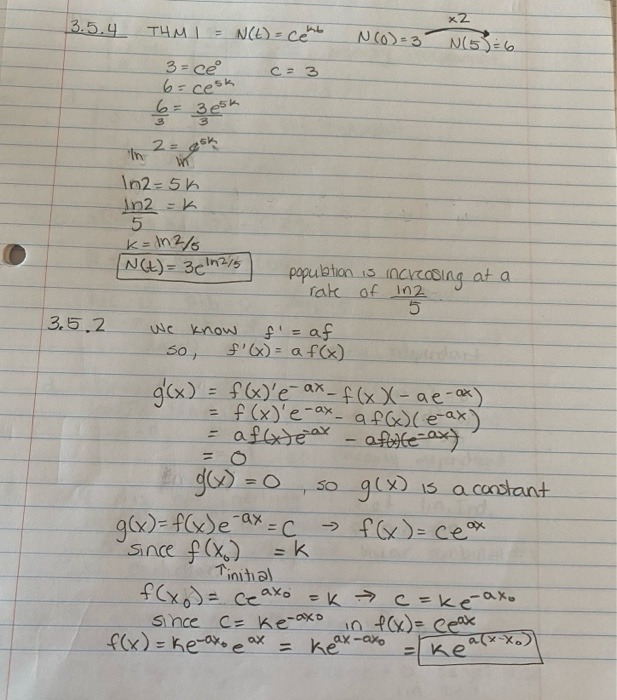 3.5.4 THM 1 = N(t) = ce^kt N(0)=3 N(5)=6 x2
3 = ce^0 c = 3
6 = ce^5k
6/3 = 3e^5k/3
ln 2 = e^5k ln
ln2 = 5k
ln2/5 = k
k = ln2/5
N(t) = 3e^ln2/5 population is increasing at a
rate of ln2/5
3.5.2 we know f' = af
so, f'(x) = a f(x)
g'(x) = f(x)'e^-ax - f(x)(-ae^-ax)
= f(x)'e^-ax - af(x)(e^-ax)
= af(x)e^-ax - af(x)(e^-ax)
= 0
g'(x) = 0, so g(x) is a constant
g(x) = f(x)e^-ax = c → f(x) = ce^ax
since f(x₀) = k
↑initial
f(x₀) = ce^ax₀ = k → c = ke^-ax₀
since c = ke^-ax₀ in f(x) = ce^ax
f(x) = ke^-ax₀ e^ax = ke^ax-ax₀ = ke^a(x-x₀)